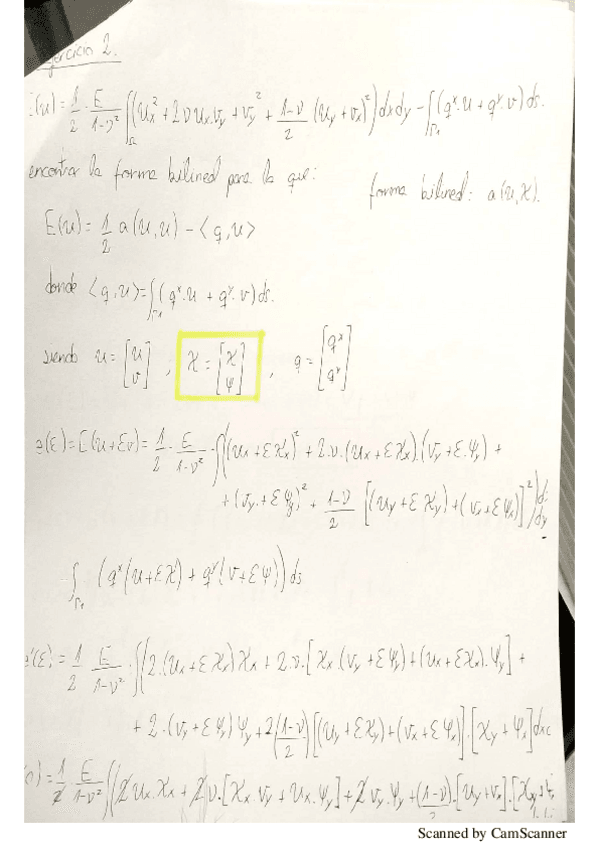 Ejercicio 2.
E(u) = 1/2 · E/(1-ν²) ∫_Ω (u_x² + 2ν u_x·v_y + v_y² + (1-ν)/2 (u_y + v_x)²) dxdy - ∫_Γ₁ (q^x·u + q^y·v) ds.
encontrar la forma bilineal para la que:
forma bilineal: a(u,χ).
E(u) = 1/2 a(u,u) - <q,u>
donde <q,u> = ∫_Γ₁ (q^x·u + q^y·v) ds.
siendo u = [u v] , χ = [χ ψ] , q = [q^x q^y]
e(ε) = E(u+εv) = 1/2 · E/(1-ν²) · ∫((u_x+εχ_x)² + 2·ν·(u_x+εχ_x)·(v_y+ε·ψ_y) +
+ (v_y + εψ_y)² + (1-ν)/2 [(u_y+εχ_y) + (v_x+εψ_x)]²) dx dy
∫_Γ₁ (q^x(u+εχ) + q^y(v+εψ)) ds
e'(ε) = 1/2 E/(1-ν²) · ∫(2·(u_x+εχ_x)χ_x + 2·ν·[χ_x·(v_y+εψ_y) + (u_x+εχ_x)·ψ_y] +
+ 2·(v_y+εψ_y)ψ_y + 2((1-ν)/2)[(u_y+εχ_y)+(v_x+εψ_x)]·[χ_y+ψ_x] dx
(0) = 1/2 E/(1-ν²) ∫(2u_x·χ_x + 2ν·[χ_x·v_y + u_x·ψ_y] + 2v_y·ψ_y + (1-ν)/2·[u_y+v_x]·[χ_y+
Scanned by CamScanner